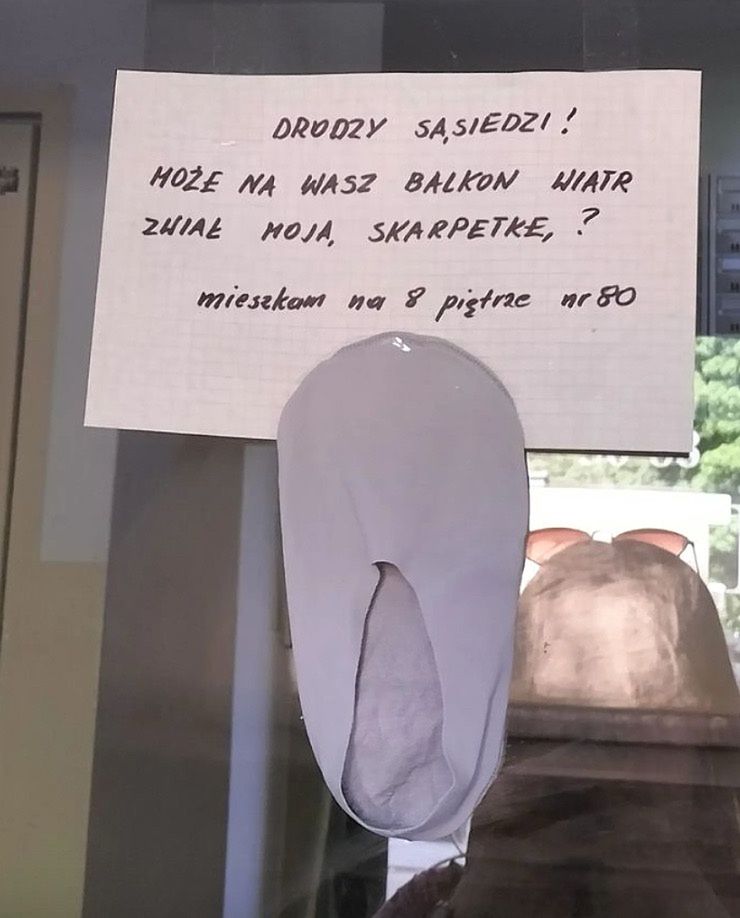 DRODZY SĄSIEDZI!
MOŻE NA WASZ BALKON WIATR
ZWIAŁ MOJĄ SKARPETKĘ?
mieszkam na 8 piętrze nr 80